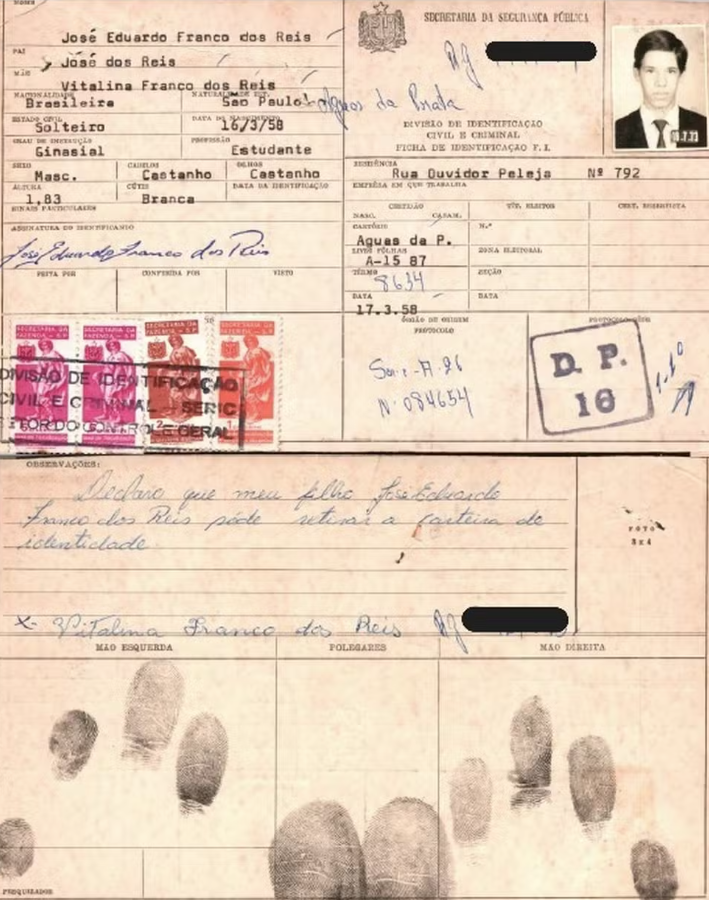 NOME
José Eduardo Franco dos Reis
PAI
José dos Reis
MÃE
Vitalina Franco dos Reis
NACIONALIDADE
NATURALIDADE EST.
Brasileira
São Paulo - Águas da Prata
ESTADO CIVIL
DATA DO NASCIMENTO
Solteiro
16/3/58
GRAU DE INSTRUÇÃO
PROFISSÃO
Ginasial
Estudante
SEXO
CABELOS
OLHOS
Masc.
Castanho
Castanho
ALTURA
CÚTIS
DATA DA IDENTIFICAÇÃO
1,83
Branca
SINAIS PARTICULARES
ASSINATURA DO IDENTIFICANDO
José Eduardo Franco dos Reis
FEITA POR
CONFERIDA POR
VISTO
SECRETARIA DA FAZENDA - S.P.
SECRETARIA DA FAZENDA - S.P.
SECRETARIA DA FAZENDA - S.P.
SECRETARIA DA FAZENDA - S.P.
DIVISÃO DE IDENTIFICAÇÃO
CIVIL E CRIMINAL - SERIC
SETOR DO CONTROLE GERAL
SECRETARIA DA SEGURANÇA PÚBLICA
RG
DIVISÃO DE IDENTIFICAÇÃO
CIVIL E CRIMINAL
FICHA DE IDENTIFICAÇÃO F. I.
RESIDÊNCIA
Rua Ouvidor Peleja Nº 792
EMPRÊSA EM QUE TRABALHA
CERTIDÃO
TÍT. ELEITOR
CERT. RESERVISTA
NASC. CASAM.
CARTÓRIO
Nº
Aguas da P.
LIVRO FÔLHAS
ZONA ELEITORAL
A-15 87
TÊRMO
SEÇÃO
8634
DATA
DATA
17.3.58
ÓRGÃO DE ORIGEM
PROTOCOLO
Nº 084654
D. P.
16
OBSERVAÇÕES:
Declaro que meu filho José Eduardo
Franco dos Reis póde retirar a carteira de
identidade
FOTO
3x4
X- Vitalina Franco dos Reis RG
MÃO ESQUERDA
POLEGARES
MÃO DIREITA
PESQUIZADOR